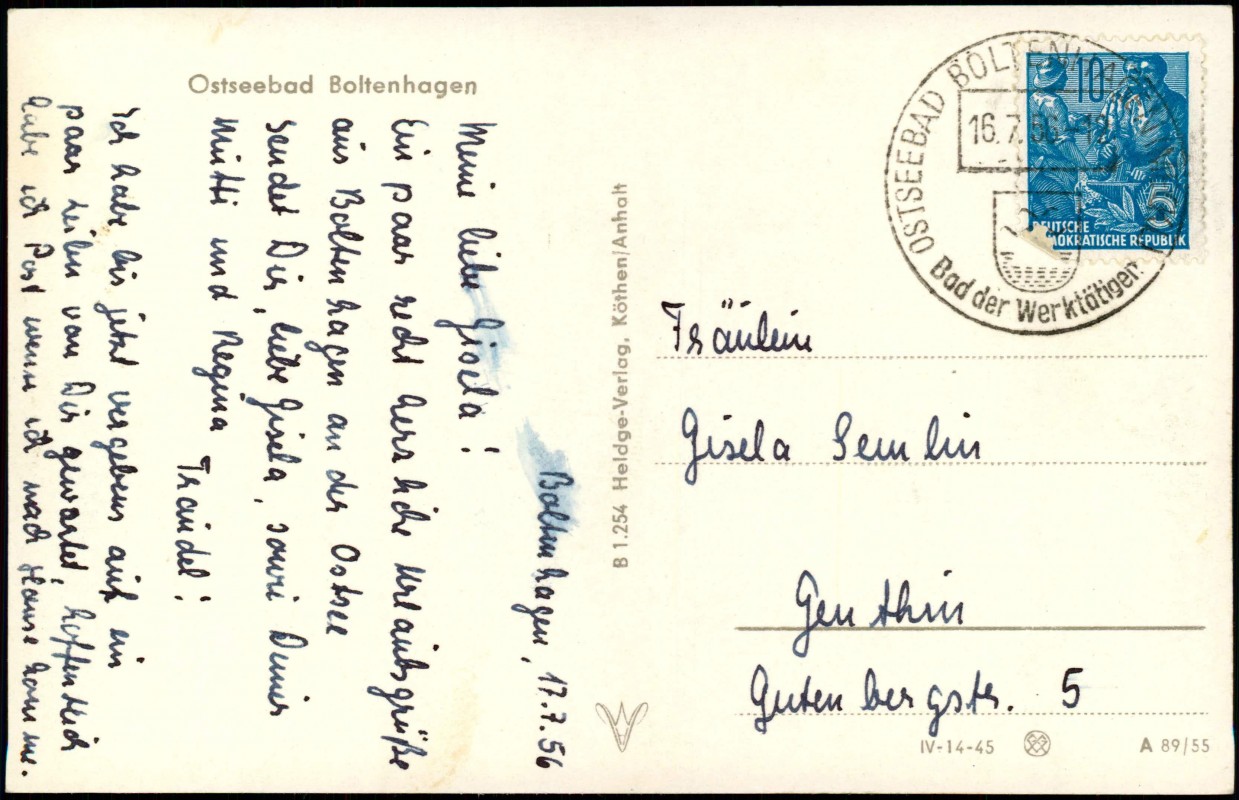 Ostseebad Boltenhagen
Boltenhagen, 17.7.56
Meine liebe Gisela!
Ein paar recht herzliche Urlaubsgrüße
aus Boltenhagen an der Ostsee
sendet Dir, liebe Gisela, sowie Deiner
Mutti und Regina
Traudel!
Ich habe bis jetzt vergebens auf ein
paar Zeilen von Dir gewartet, hoffentlich
habe ich Post wenn ich nach Hause komme.
B 1.254 Heldge-Verlag, Köthen/Anhalt
OSTSEEBAD BOLTENHAGEN
16.7.56-19
Bad der Werktätigen
10
5
DEUTSCHE
DEMOKRATISCHE REPUBLIK
Fräulein
Gisela Semlin
Genthin
Gutenbergstr. 5
IV-14-45
A 89/55